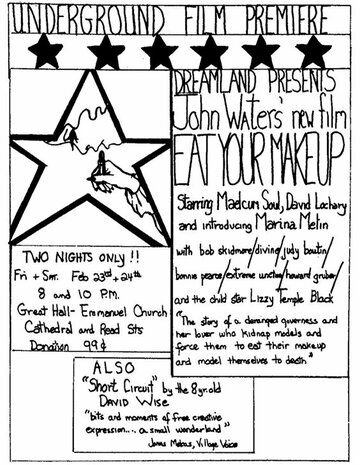 UNDERGROUND FILM PREMIERE
DREAMLAND PRESENTS
John Waters' new film
EAT YOUR MAKEUP
Starring Maelcum Soul, David Lochary
and introducing Marina Melin
with bob skidmore/divine/judy boutin/
bonnie pearce/extreme unction/howard gruber/
and the child star Lizzy Temple Black
"The story of a deranged governess and
her lover who kidnap models and
force them to eat their makeup
and model themselves to death"
TWO NIGHTS ONLY !!
Fri + Sat. Feb 23rd + 24th
8 and 10 P.M.
Great Hall - Emmanuel Church
Cathedral and Read Sts
Donation 99¢
ALSO
"Short Circuit" by the 8 yr. old
DAVID WISE
"bits and moments of free creative
expression.... a small wonderland"
Jonas Mekas, Village Voice